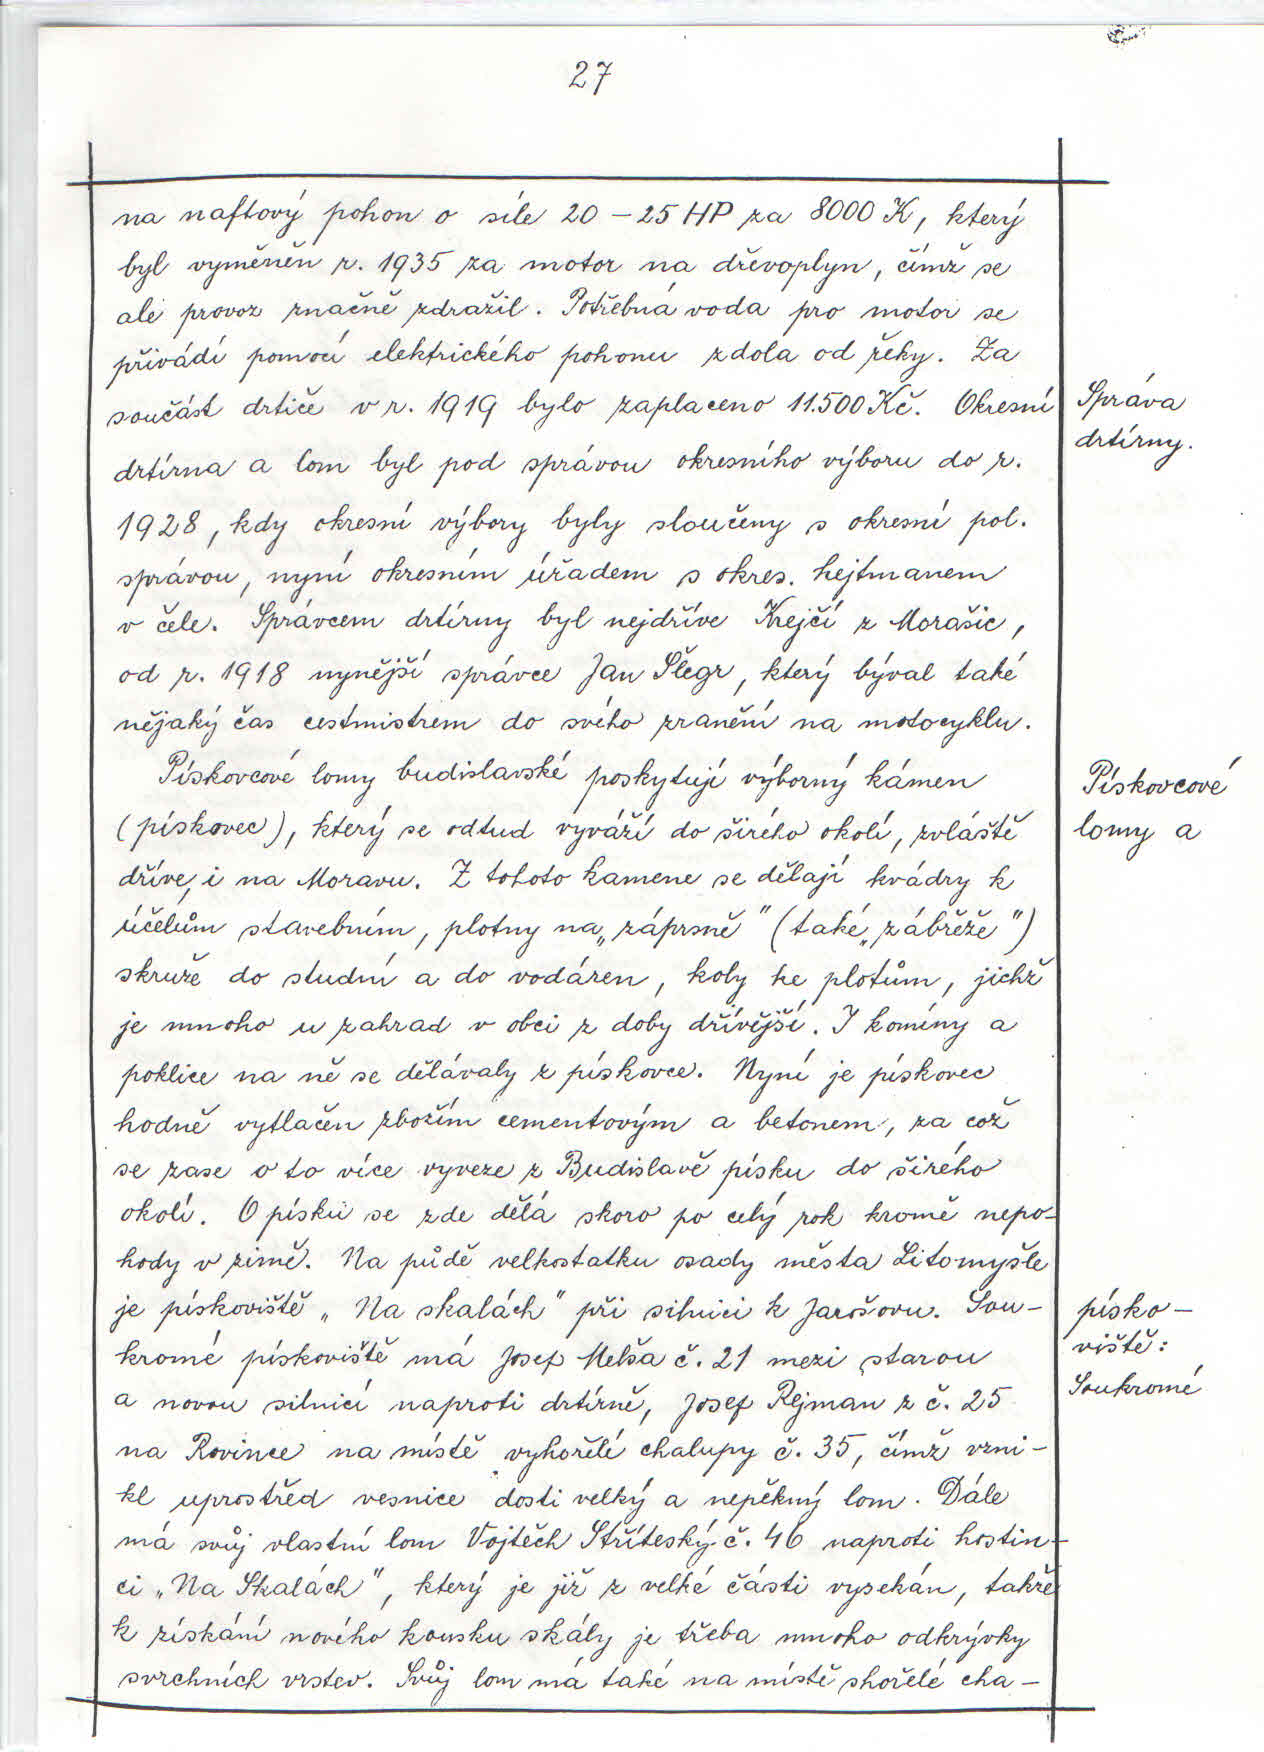 27
na naftový pohon o síle 20 – 25 HP za 8000 K, který
byl vyměněn r. 1935 za motor na dřevoplyn, čímž se
ale provoz značně zdražil. Potřebná voda pro motor se
přivádí pomocí elektrického pohonu zdola od řeky. Za
součást drtiče v r. 1919 bylo zaplaceno 11.500 Kč. Okresní
Správa
drtírny.
drtírna a lom byl pod správou okresního výboru do r.
1928, kdy okresní výbory byly sloučeny s okresní pol.
správou, nyní okresním úřadem s okres. hejtmanem
v čele. Správcem drtírny byl nejdříve Krejčí z Morašic,
od r. 1918 nynější správce Jan Šlégr, který býval také
nějaký čas cestmistrem do svého zranění na motocyklu.
Pískovcové lomy budislavské poskytují výborný kámen
Pískovcové
lomy a
(pískovec), který se odtud vyváží do širého okolí, zvláště
dříve, i na Moravu. Z tohoto kamene se dělají kvádry k
účelům stavebním, plotny na „záprsně" (také „zábřeže")
skruže do studní a do vodáren, koly ke plotům, jichž
je mnoho u zahrad v obci z doby dřívější. I komíny a
poklice na ně se dělávaly z pískovce. Nyní je pískovec
hodně vytlačen zbožím cementovým a betonem, za což
se zase o to více vyveze z Budislavě písku do širého
okolí. O písku se zde dělá skoro po celý rok kromě nepo-
hody v zimě. Na půdě velkostatku osady města Litomyšle
je pískoviště „Na skalách" při silnici k Jarošovu. Sou-
písko-
viště:
Soukromé
kromé pískoviště má Josef Melša č. 21 mezi starou
a novou silnicí naproti drtírně, Josef Rejman z č. 25
na Rovince na místě vyhořelé chalupy č. 35, čímž vzni-
kl uprostřed vesnice dosti velký a nepěkný lom. Dále
má svůj vlastní lom Vojtěch Stříteský č. 46 naproti hostin-
ci „Na Skalách", který je již z velké části vysekán, takže
k získání nového kousku skály je třeba mnoho odkrývky
svrchních vrstev. Svůj lom má také na místě shořelé cha-